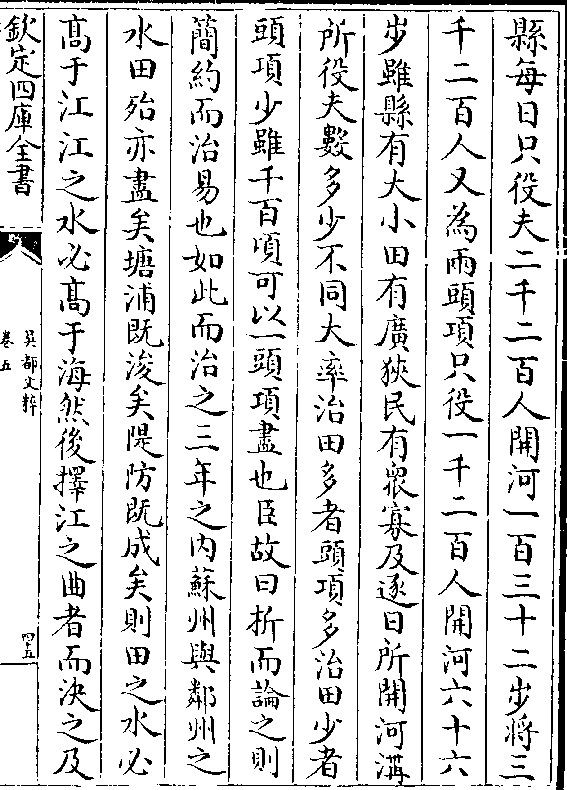 縣每日只役夫二千二百人開河一百三十二步將三
千二百人又為兩頭項只役一千二百人開河六十六
步雖縣有大小田有廣狹民有眾寡及逐日所開河溝
所役夫數多少不同大率治田多者頭項多治田少者
頭項少雖千百項可以一頭項盡也臣故曰折而論之則
簡約而治易也如此而治之三年之内蘇州與鄰州之
水田殆亦盡矣塘浦既浚矣隄防既成矣則田之水必
高于江江之水必高于海然後擇江之曲者而決之及
欽定四庫全書
吳都文粹
卷五
四五